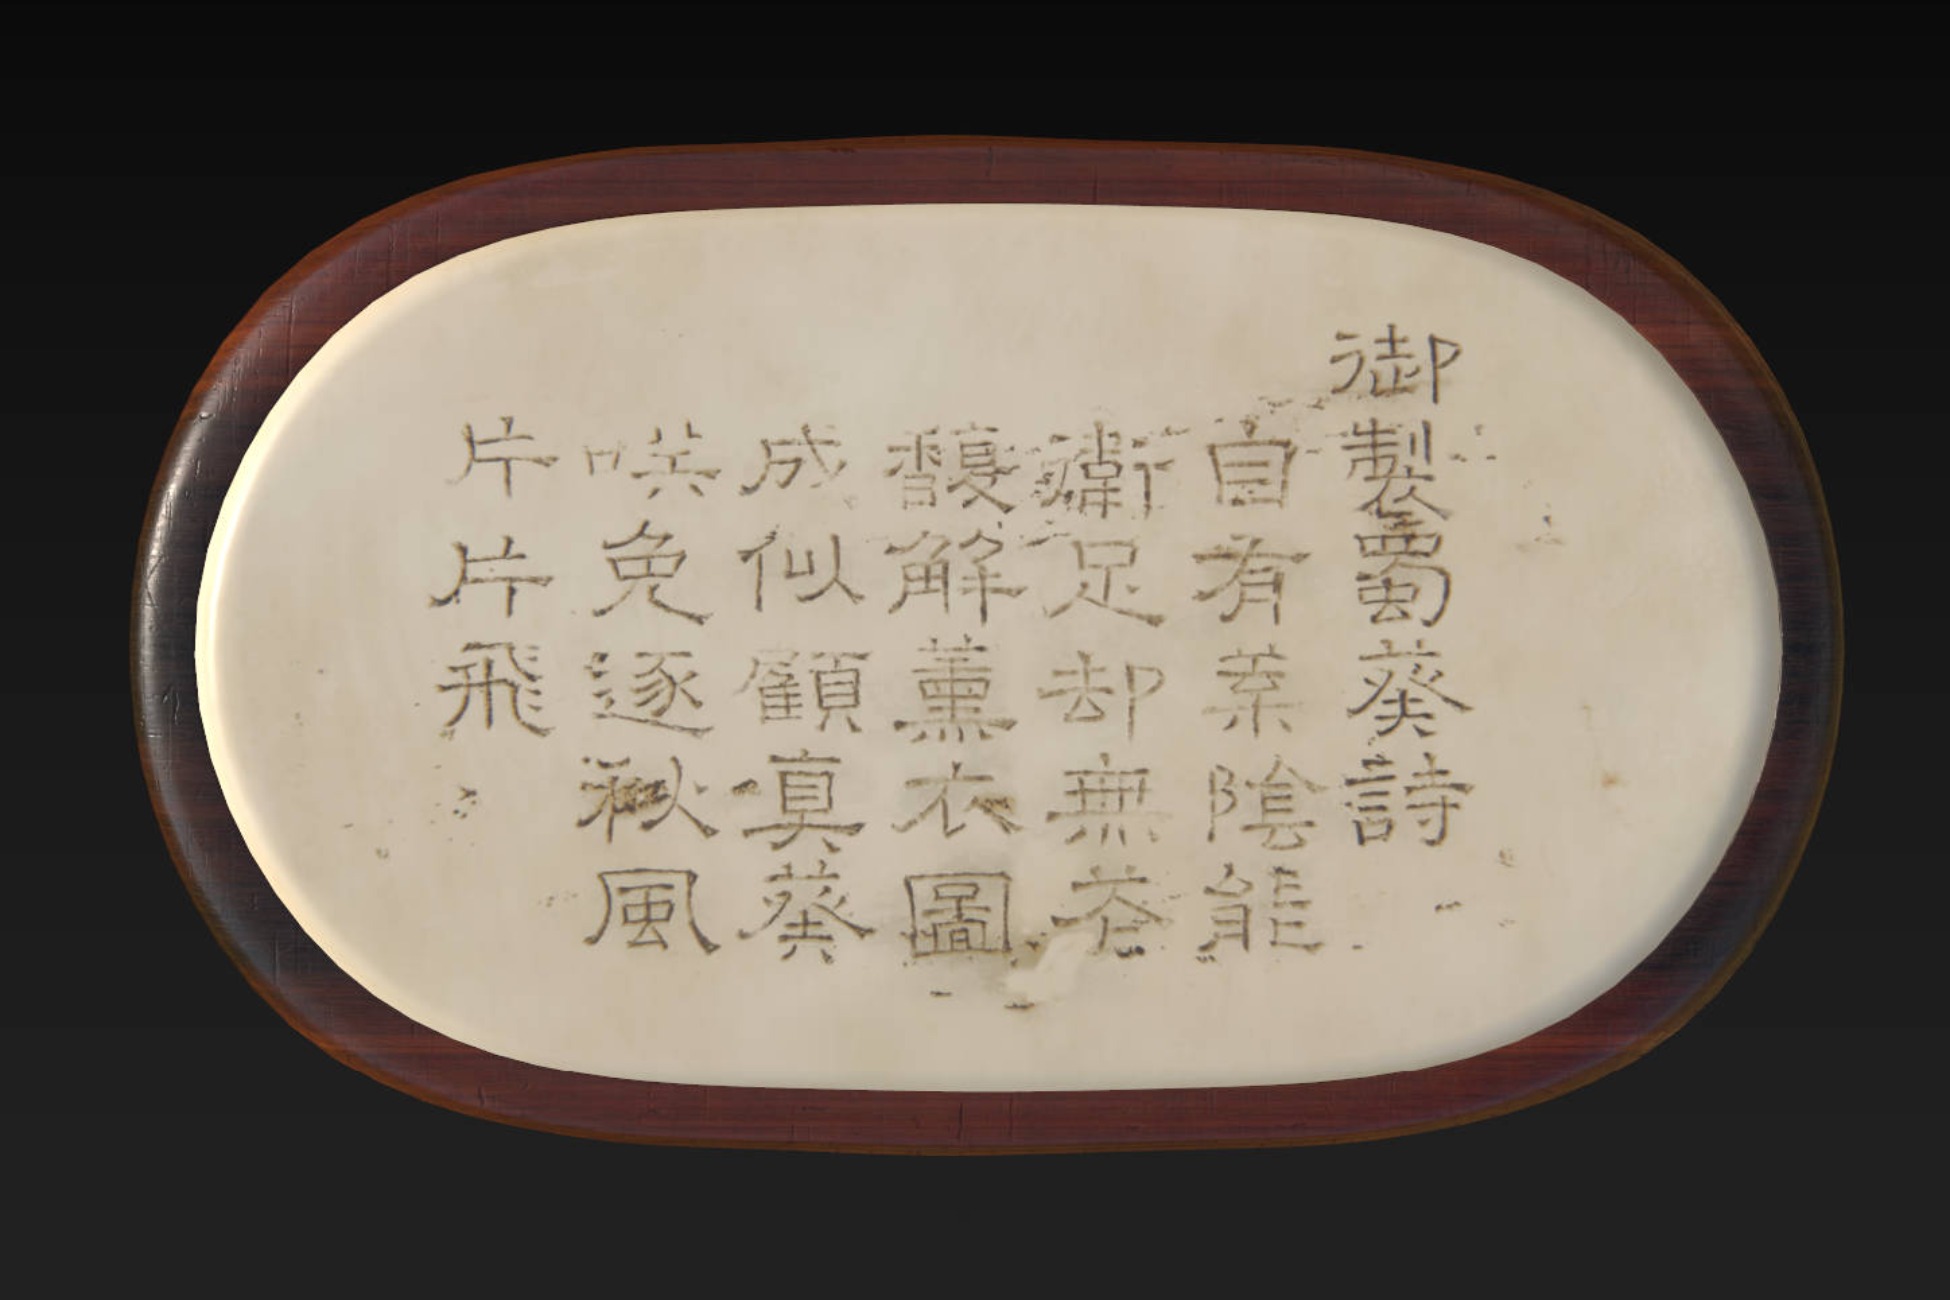 御製蜀葵詩
自有葉陰能
衛足却無芬
馥解薰衣圖
成似顧真葵
咲免逐秋風
片片飛